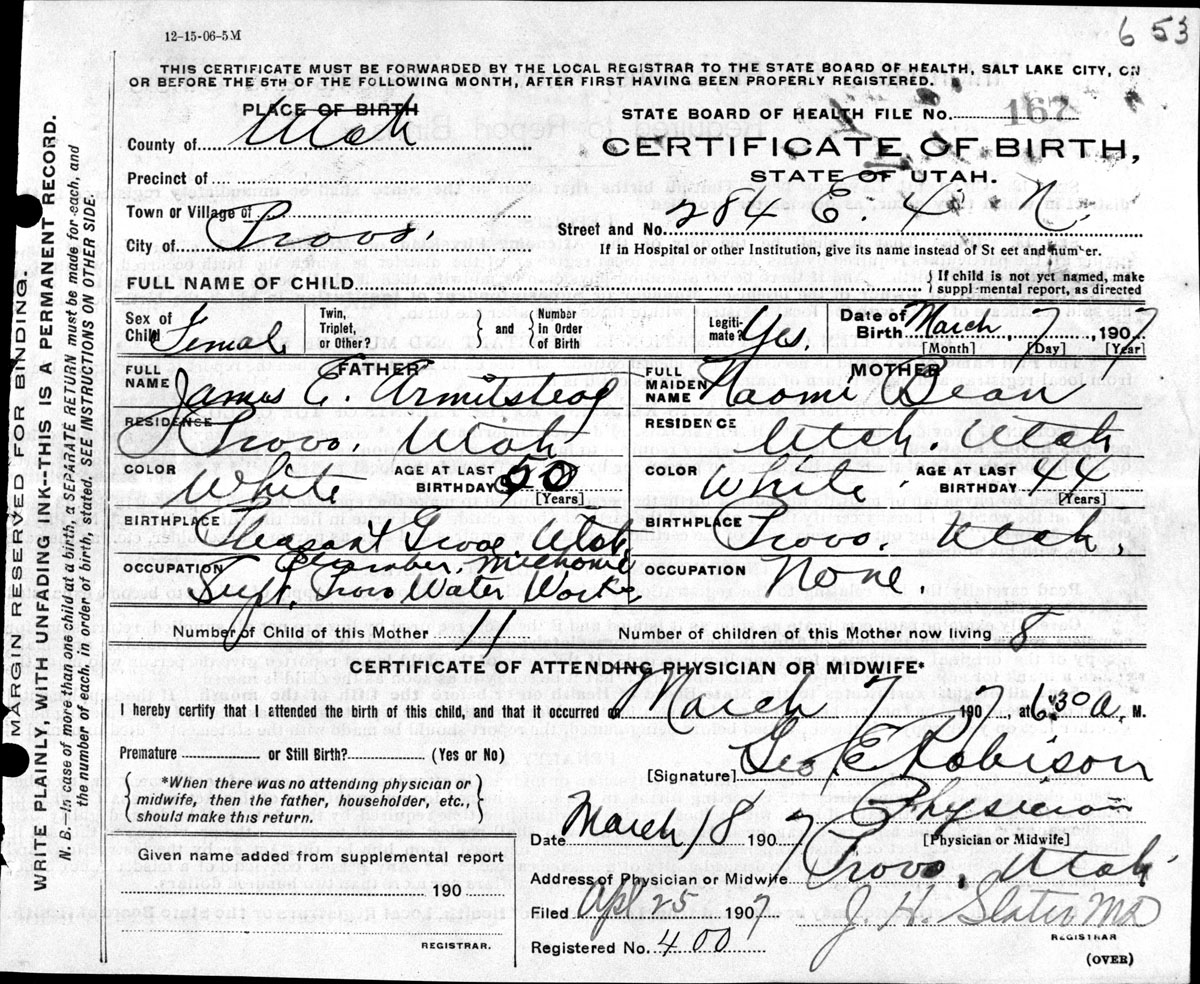 12-15-06-5M
6 53
THIS CERTIFICATE MUST BE FORWARDED BY THE LOCAL REGISTRAR TO THE STATE BOARD OF HEALTH, SALT LAKE CITY, ON
OR BEFORE THE 5TH OF THE FOLLOWING MONTH, AFTER FIRST HAVING BEEN PROPERLY REGISTERED.
PLACE OF BIRTH
County of Utah
Precinct of
Town or Village of
City of Provo.
STATE BOARD OF HEALTH FILE No. 167
CERTIFICATE OF BIRTH,
STATE OF UTAH.
Street and No. 284 E. 4 N.
If in Hospital or other Institution, give name instead of Street and number.
FULL NAME OF CHILD.
If child is not yet named, make
supplemental report, as directed
Sex of Child Female
Twin, Triplet, or Other? and Number in Order of Birth
Legitimate? Yes.
Date of Birth March 7 1907
[Month] [Day] [Year]
FATHER
FULL NAME James E. Armitstead
RESIDENCE Provo, Utah
COLOR White AGE AT LAST BIRTHDAY 50 [Years]
BIRTHPLACE Pleasant Grove, Utah
OCCUPATION Plumber,
Supt. Provo Water Works
MOTHER
FULL MAIDEN NAME Naomi Bean
RESIDENCE Utah. Utah
COLOR White. AGE AT LAST BIRTHDAY 44 [Years]
BIRTHPLACE Provo, Utah,
OCCUPATION None.
Number of Child of this Mother 11 Number of children of this Mother now living 8
CERTIFICATE OF ATTENDING PHYSICIAN OR MIDWIFE*
I hereby certify that I attended the birth of this child, and that it occurred on March 7 1907, at 6:30 a. M.
Premature or Still Birth? (Yes or No)
*When there was no attending physician or
midwife, then the father, householder, etc.,
should make this return.
[Signature] Geo. E Robison
Physician
[Physician or Midwife]
Date March 8 1907
Address of Physician or Midwife Provo, Utah
Filed Apl 25 1907 J. H. Slater MD
REGISTRAR
Registered No. 400
(OVER)
Given name added from supplemental report
190
REGISTRAR.
MARGIN RESERVED FOR BINDING.
WRITE PLAINLY, WITH UNFADING INK--THIS IS A PERMANENT RECORD.
N. B.—In case of more than one child at a birth, a SEPARATE RETURN must be made for each, and
the number of each, in order of birth, stated. SEE INSTRUCTIONS ON OTHER SIDE.